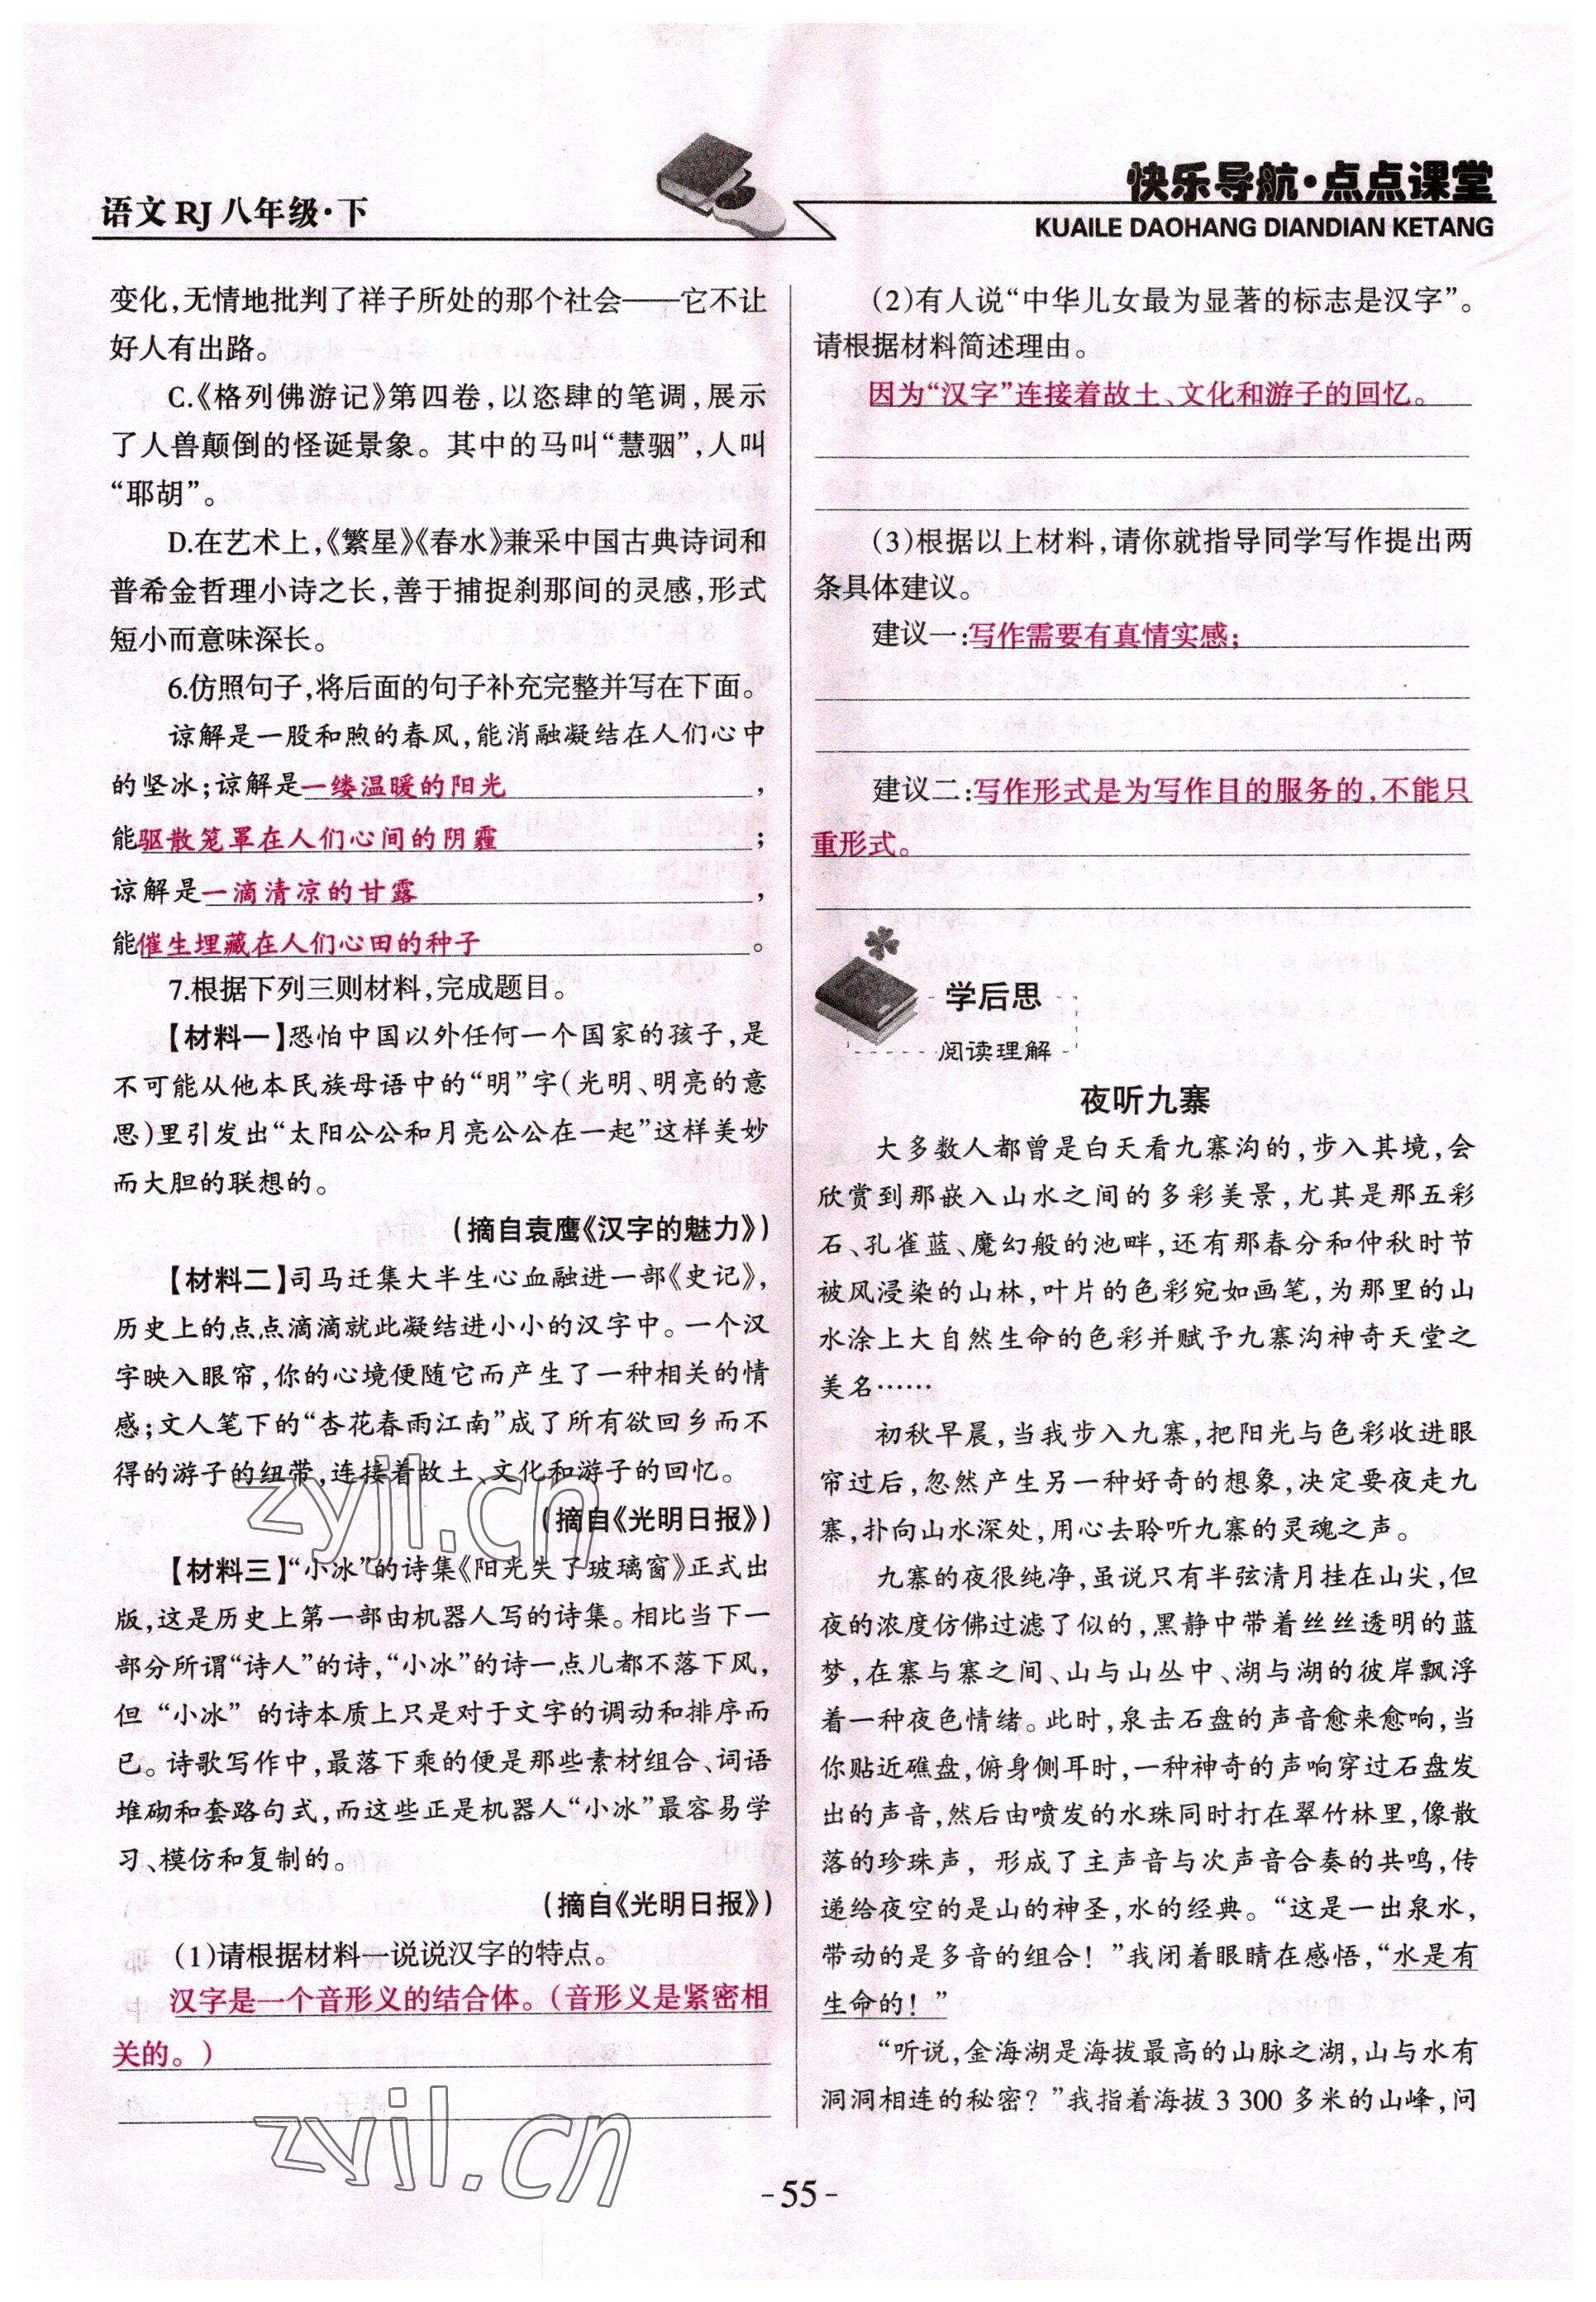 语文 RJ 八年级·下
快乐导航·点点课堂
KUAILE DAOHANG DIANDIAN KETANG
变化,无情地批判了祥子所处的那个社会——它不让
好人有出路。
C.《格列佛游记》第四卷,以恣肆的笔调,展示
了人兽颠倒的怪诞景象。其中的马叫“慧骃”,人叫
“耶胡”。
D.在艺术上,《繁星》《春水》兼采中国古典诗词和
普希金哲理小诗之长,善于捕捉刹那间的灵感,形式
短小而意味深长。
6.仿照句子,将后面的句子补充完整并写在下面。
谅解是一股和煦的春风,能消融凝结在人们心中
的坚冰;谅解是一缕温暖的阳光,
能驱散笼罩在人们心间的阴霾;
谅解是一滴清凉的甘露,
能催生埋藏在人们心田的种子。
7.根据下列三则材料,完成题目。
【材料一】恐怕中国以外任何一个国家的孩子,是
不可能从他本民族母语中的“明”字(光明、明亮的意
思)里引发出“太阳公公和月亮公公在一起”这样美妙
而大胆的联想的。
(摘自袁鹰《汉字的魅力》)
【材料二】司马迁集大半生心血融进一部《史记》,
历史上的点点滴滴就此凝结进小小的汉字中。一个汉
字映入眼帘,你的心境便随它而产生了一种相关的情
感;文人笔下的“杏花春雨江南”成了所有欲回乡而不
得的游子的纽带,连接着故土、文化和游子的回忆。
(摘自《光明日报》)
【材料三】“小冰”的诗集《阳光失了玻璃窗》正式出
版,这是历史上第一部由机器人写的诗集。相比当下一
部分所谓“诗人”的诗,“小冰”的诗一点儿都不落下风,
但“小冰”的诗本质上只是对于文字的调动和排序而
已。诗歌写作中,最落下乘的便是那些素材组合、词语
堆砌和套路句式,而这些正是机器人“小冰”最容易学
习、模仿和复制的。
(摘自《光明日报》)
(1)请根据材料一说说汉字的特点。
汉字是一个音形义的结合体。(音形义是紧密相
关的。)
(2)有人说“中华儿女最为显著的标志是汉字”。
请根据材料简述理由。
因为“汉字”连接着故土、文化和游子的回忆。
(3)根据以上材料,请你就指导同学写作提出两
条具体建议。
建议一:写作需要有真情实感;
建议二:写作形式是为写作目的服务的,不能只
重形式。
学后思
阅读理解
夜听九寨
大多数人都曾是白天看九寨沟的,步入其境,会
欣赏到那嵌入山水之间的多彩美景,尤其是那五彩
石、孔雀蓝、魔幻般的池畔,还有那春分和仲秋时节
被风浸染的山林,叶片的色彩宛如画笔,为那里的山
水涂上大自然生命的色彩并赋予九寨沟神奇天堂之
美名……
初秋早晨,当我步入九寨,把阳光与色彩收进眼
帘过后,忽然产生另一种好奇的想象,决定要夜走九
寨,扑向山水深处,用心去聆听九寨的灵魂之声。
九寨的夜很纯净,虽说只有半弦清月挂在山尖,但
夜的浓度仿佛过滤了似的,黑静中带着丝丝透明的蓝
梦,在寨与寨之间、山与山丛中、湖与湖的彼岸飘浮
着一种夜色情绪。此时,泉击石盘的声音愈来愈响,当
你贴近礁盘,俯身侧耳时,一种神奇的声响穿过石盘发
出的声音,然后由喷发的水珠同时打在翠竹林里,像散
落的珍珠声,形成了主声音与次声音合奏的共鸣,传
递给夜空的是山的神圣,水的经典。“这是一出泉水,
带动的是多音的组合!”我闭着眼睛在感悟,“水是有
生命的!”
“听说,金海湖是海拔最高的山脉之湖,山与水有
洞洞相连的秘密?”我指着海拔 3 300 多米的山峰,问
zyjl.cn
zyjl.cn
-55-